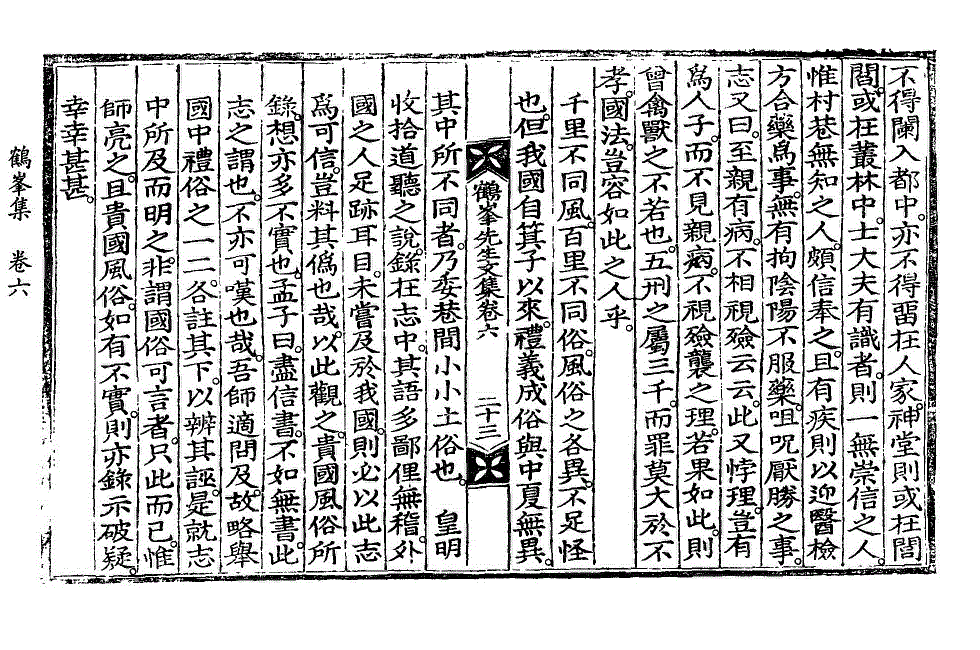 不得闌入都中。亦不得畱在人家。神堂則或在閭
閻。或在叢林中。士大夫有識者。則一無崇信之人。
惟村巷無知之人。頗信奉之。且有疾則以迎醫檢
方合藥爲事。無有拘陰陽不服藥。咀呪厭勝之事。
志又曰。至親有病。不相視殮云云。此又悖理。豈有
爲人子。而不見親病。不視殮襲之理。若果如此。則
曾禽獸之不若也。五刑之屬三千。而罪莫大於不
孝。國法。豈容如此之人乎。
千里不同風。百里不同俗。風俗之各異。不足怪
也。但我國自箕子以來。禮義成俗。與中夏無異。
鶴峯先生文集卷六 二十三
其中所不同者。乃委巷間小小土俗也。 皇明
收拾道聽之說。錄在志中。其語多鄙俚無稽。外
國之人足跡耳目。未嘗及於我國。則必以此志
爲可信。豈料其僞也哉。以此觀之。貴國風俗所
錄。想亦多不實也。孟子曰。盡信書。不如無書。此
志之謂也。不亦可嘆也哉。吾師適問及。故略擧
國中禮俗之一二。各註其下。以辨其誣。是就志
中所及而明之。非謂國俗可言者。只此而已。惟
師亮之。且貴國風俗。如有不實。則亦錄示破疑。
幸幸甚甚。
鶴峯集 卷六